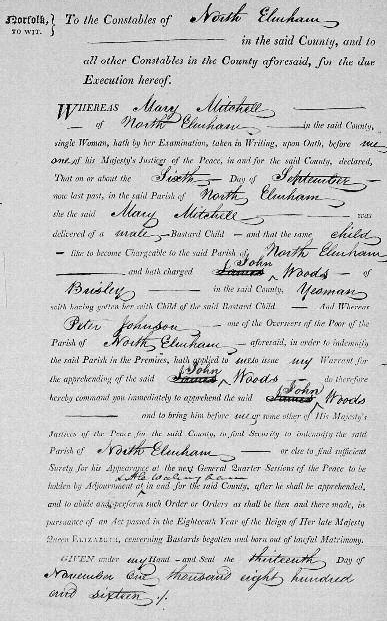 Norfolk, } To the Constables of North Elmham
TO WIT. }
in the said County, and to
all other Constables in the County aforesaid, for the due
Execution hereof.
WHEREAS Mary Mitchell
of North Elmham in the said County,
single Woman, hath by her Examination, taken in Writing, upon Oath, before me
one of his Majesty's Justices of the Peace, in and for the said County, declared,
That on or about the Sixth Day of September
now last past, in the said Parish of North Elmham
she the said Mary Mitchell was
delivered of a male Bastard Child and that the same child
like to become Chargeable to the said Parish of North Elmham
and hath charged James John Woods of
Brisley in the said County, Yeoman
with having gotten her with Child of the said Bastard Child And Whereas
Peter Johnson one of the Overseers of the Poor of the
Parish of North Elmham aforesaid, in order to indemnify
the said Parish in the Premises, hath applied to me to issue my Warrant for
the apprehending of the said James John Woods do therefore
hereby command you immediately to apprehend the said James John Woods
and to bring him before me or some other of His Majesty's
Justices of the Peace for the said County, to find Security to indemnify the said
Parish of North Elmham or else to find sufficient
Surety for his Appearance at the next General Quarter Sessions of the Peace to be
holden by Adjournment at Little Walsingham in and for the said County, after he shall be apprehended,
and to abide and perform such Order or Orders as shall be then and there made, in
pursuance of an Act passed in the Eighteenth Year of the Reign of Her late Majesty
Queen ELIZABETH, concerning Bastards begotten and born out of lawful Matrimony.
GIVEN under my Hand and Seal the thirteenth Day of
November One thousand eight hundred
and sixteen